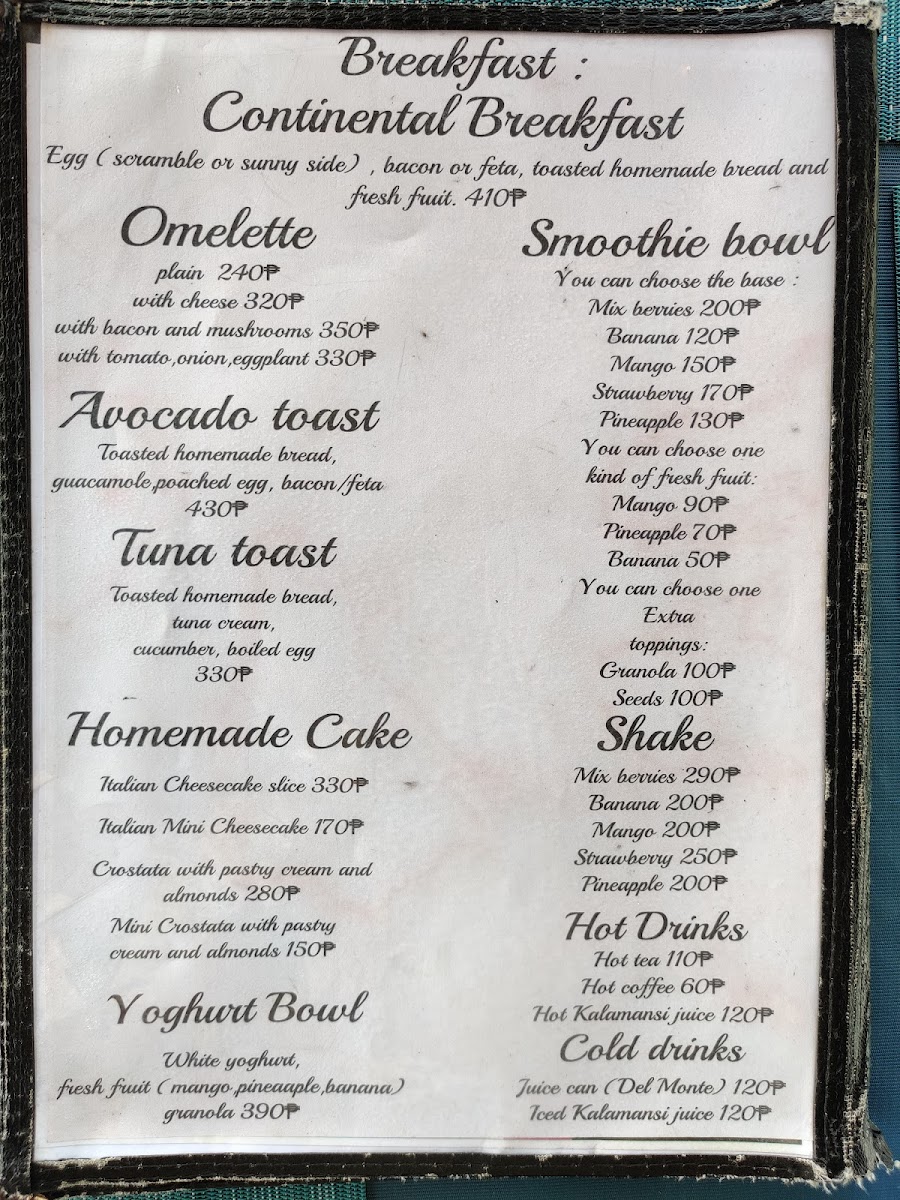 Breakfast :
Continental Breakfast
Egg ( scramble or sunny side) , bacon or feta, toasted homemade bread and
fresh fruit. 410₱
Omelette
plain 240₱
with cheese 320₱
with bacon and mushrooms 350₱
with tomato,onion,eggplant 330₱
Avocado toast
Toasted homemade bread,
guacamole,poached egg, bacon/feta
430₱
Tuna toast
Toasted homemade bread,
tuna cream,
cucumber, boiled egg
330₱
Homemade Cake
Italian Cheesecake slice 330₱
Italian Mini Cheesecake 170₱
Crostata with pastry cream and
almonds 280₱
Mini Crostata with pastry
cream and almonds 150₱
Yoghurt Bowl
White yoghurt,
fresh fruit ( mango,pineaaple,banana)
granola 390₱
Smoothie bowl
You can choose the base :
Mix berries 200₱
Banana 120₱
Mango 150₱
Strawberry 170₱
Pineapple 130₱
You can choose one
kind of fresh fruit:
Mango 90₱
Pineapple 70₱
Banana 50₱
You can choose one
Extra
toppings:
Granola 100₱
Seeds 100₱
Shake
Mix berries 290₱
Banana 200₱
Mango 200₱
Strawberry 250₱
Pineapple 200₱
Hot Drinks
Hot tea 110₱
Hot coffee 60₱
Hot Kalamansi juice 120₱
Cold drinks
Juice can (Del Monte) 120₱
Iced Kalamansi juice 120₱